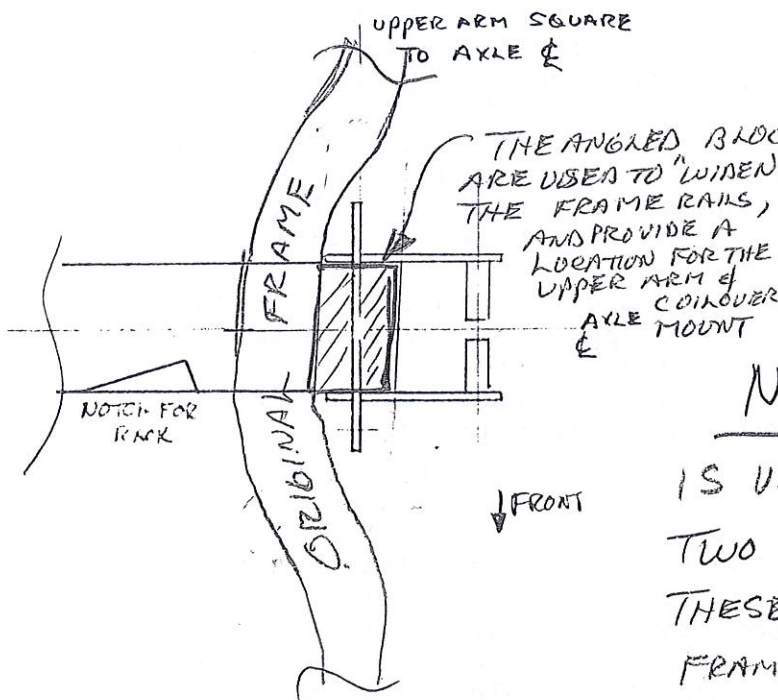 UPPER ARM SQUARE
TO AXLE ℄
THE ANGLED BLOC
ARE USED TO "WIDEN
THE FRAME RAILS,
AND PROVIDE A
LOCATION FOR THE
UPPER ARM &
COILOVER
MOUNT
AXLE
℄
ORIGINAL FRAME
NOTCH FOR
RACK
FRONT
N
IS U
TWO
THESE
FRAM